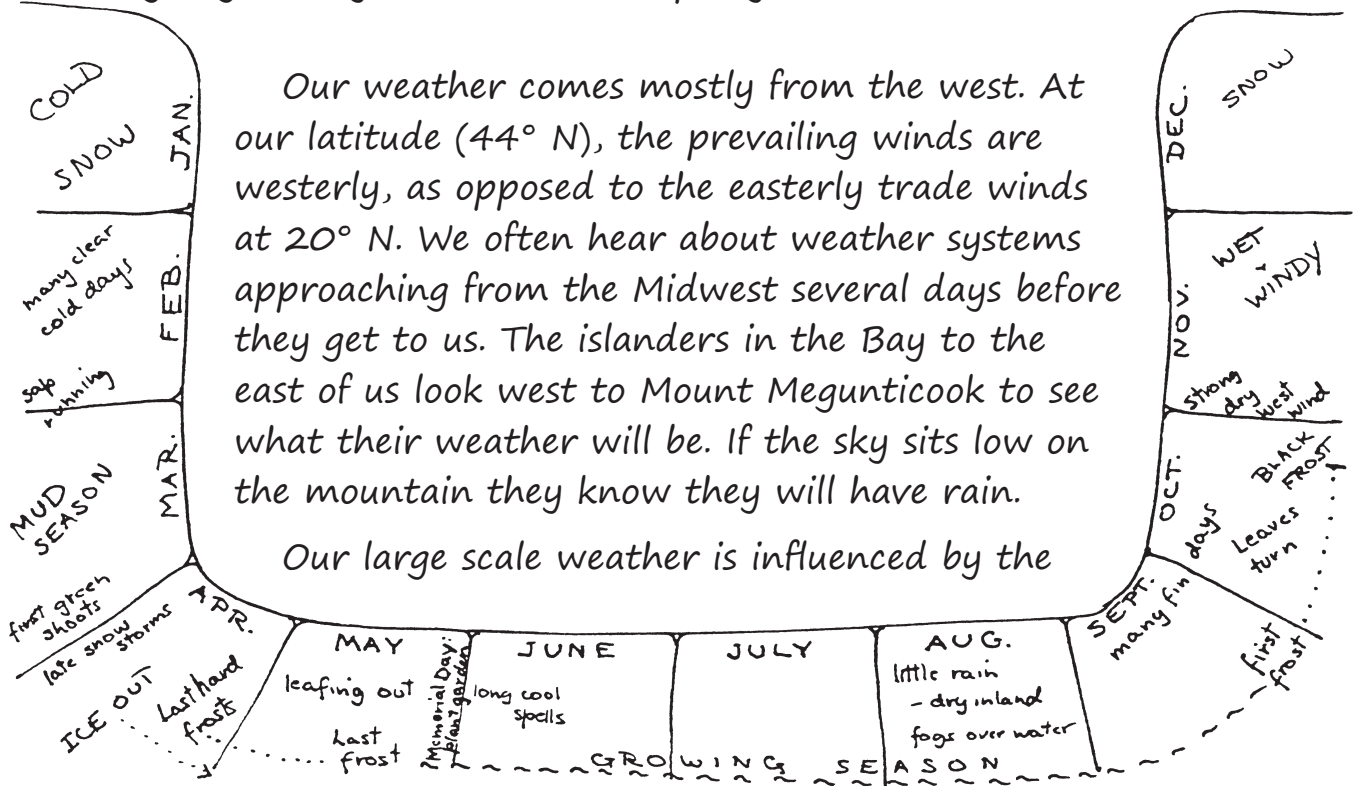 Our weather comes mostly from the west. At
our latitude (44° N), the prevailing winds are
westerly, as opposed to the easterly trade winds
at 20° N. We often hear about weather systems
approaching from the Midwest several days before
they get to us. The islanders in the Bay to the
east of us look west to Mount Megunticook to see
what their weather will be. If the sky sits low on
the mountain they know they will have rain.
Our large scale weather is influenced by the
JAN.
COLD
SNOW
FEB.
many clear
cold days
sap
running
MAR.
MUD
SEASON
first green
shoots
APR.
late snow
storms
ICE OUT
Last hard
frosts
MAY
leafing out
Last
frost
Memorial Day:
plant garden
JUNE
long cool
spells
JULY
AUG.
little rain
- dry inland
fogs over water
GROWING SEASON
SEPT.
many fin
days
first
frost
OCT.
Leaves
turn
BLACK
FROST
NOV.
WET
WINDY
strong
dry
west
wind
DEC.
SNOW